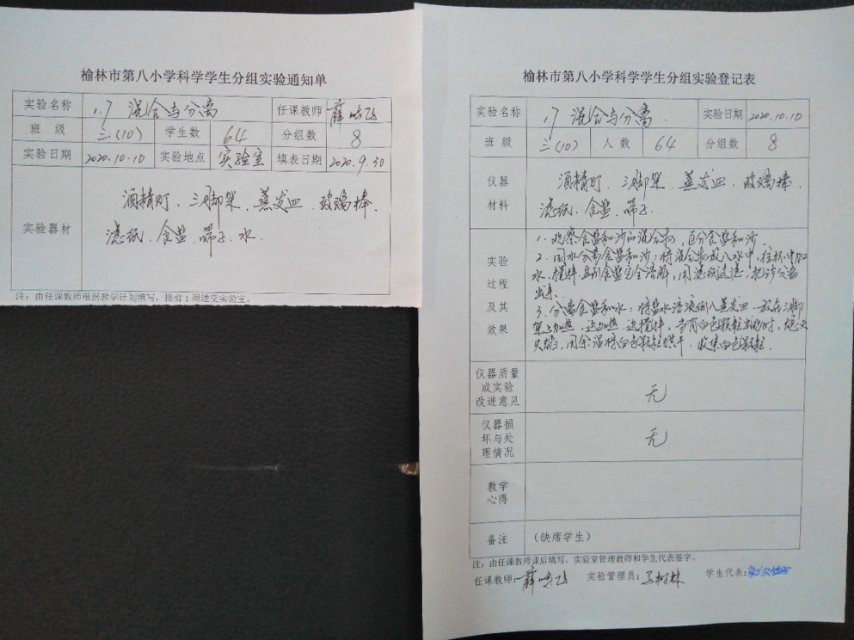 榆林市第八小学科学学生分组实验通知单
实验名称 1.7 混合与分离 任课教师 薛鸣飞
班级 三(10) 学生数 64 分组数 8
实验日期 2020.10.10 实验地点 实验室 填表日期 2020.9.30
实验器材
酒精灯、三脚架、蒸发皿、玻璃棒、
滤纸、食盐、筛子、水.
注:由任课教师根据教学计划填写,提前1周递交实验室。
榆林市第八小学科学学生分组实验登记表
实验名称 1.7 混合与分离. 实验日期 2020.10.10
班级 三(10) 人数 64 分组数 8
仪器
材料
酒精灯、三脚架、蒸发皿、玻璃棒、
滤纸、食盐、筛子.
实验
过程
及其
效果
1.观察食盐和沙的混合物,区分食盐和沙.
2.用水分离食盐和沙:将混合物放入水中,往杯中加
水,搅拌直到食盐完全溶解,用滤纸过滤,把沙分离
出来.
3.分离食盐和水:将盐水溶液倒入蒸发皿,放在三脚
架上加热,边加热,边搅拌,当有白色颗粒出现时,熄灭
火焰,用余温将白色颗粒烘干,收集白色颗粒.
仪器质量
或实验
改进意见
无
仪器损
坏与处
理情况
无
教学
心得
备注 (缺席学生)
注:由任课教师课后填写,实验室管理教师和学生代表签字。
任课教师:薛鸣飞 实验管理员:马树林 学生代表: